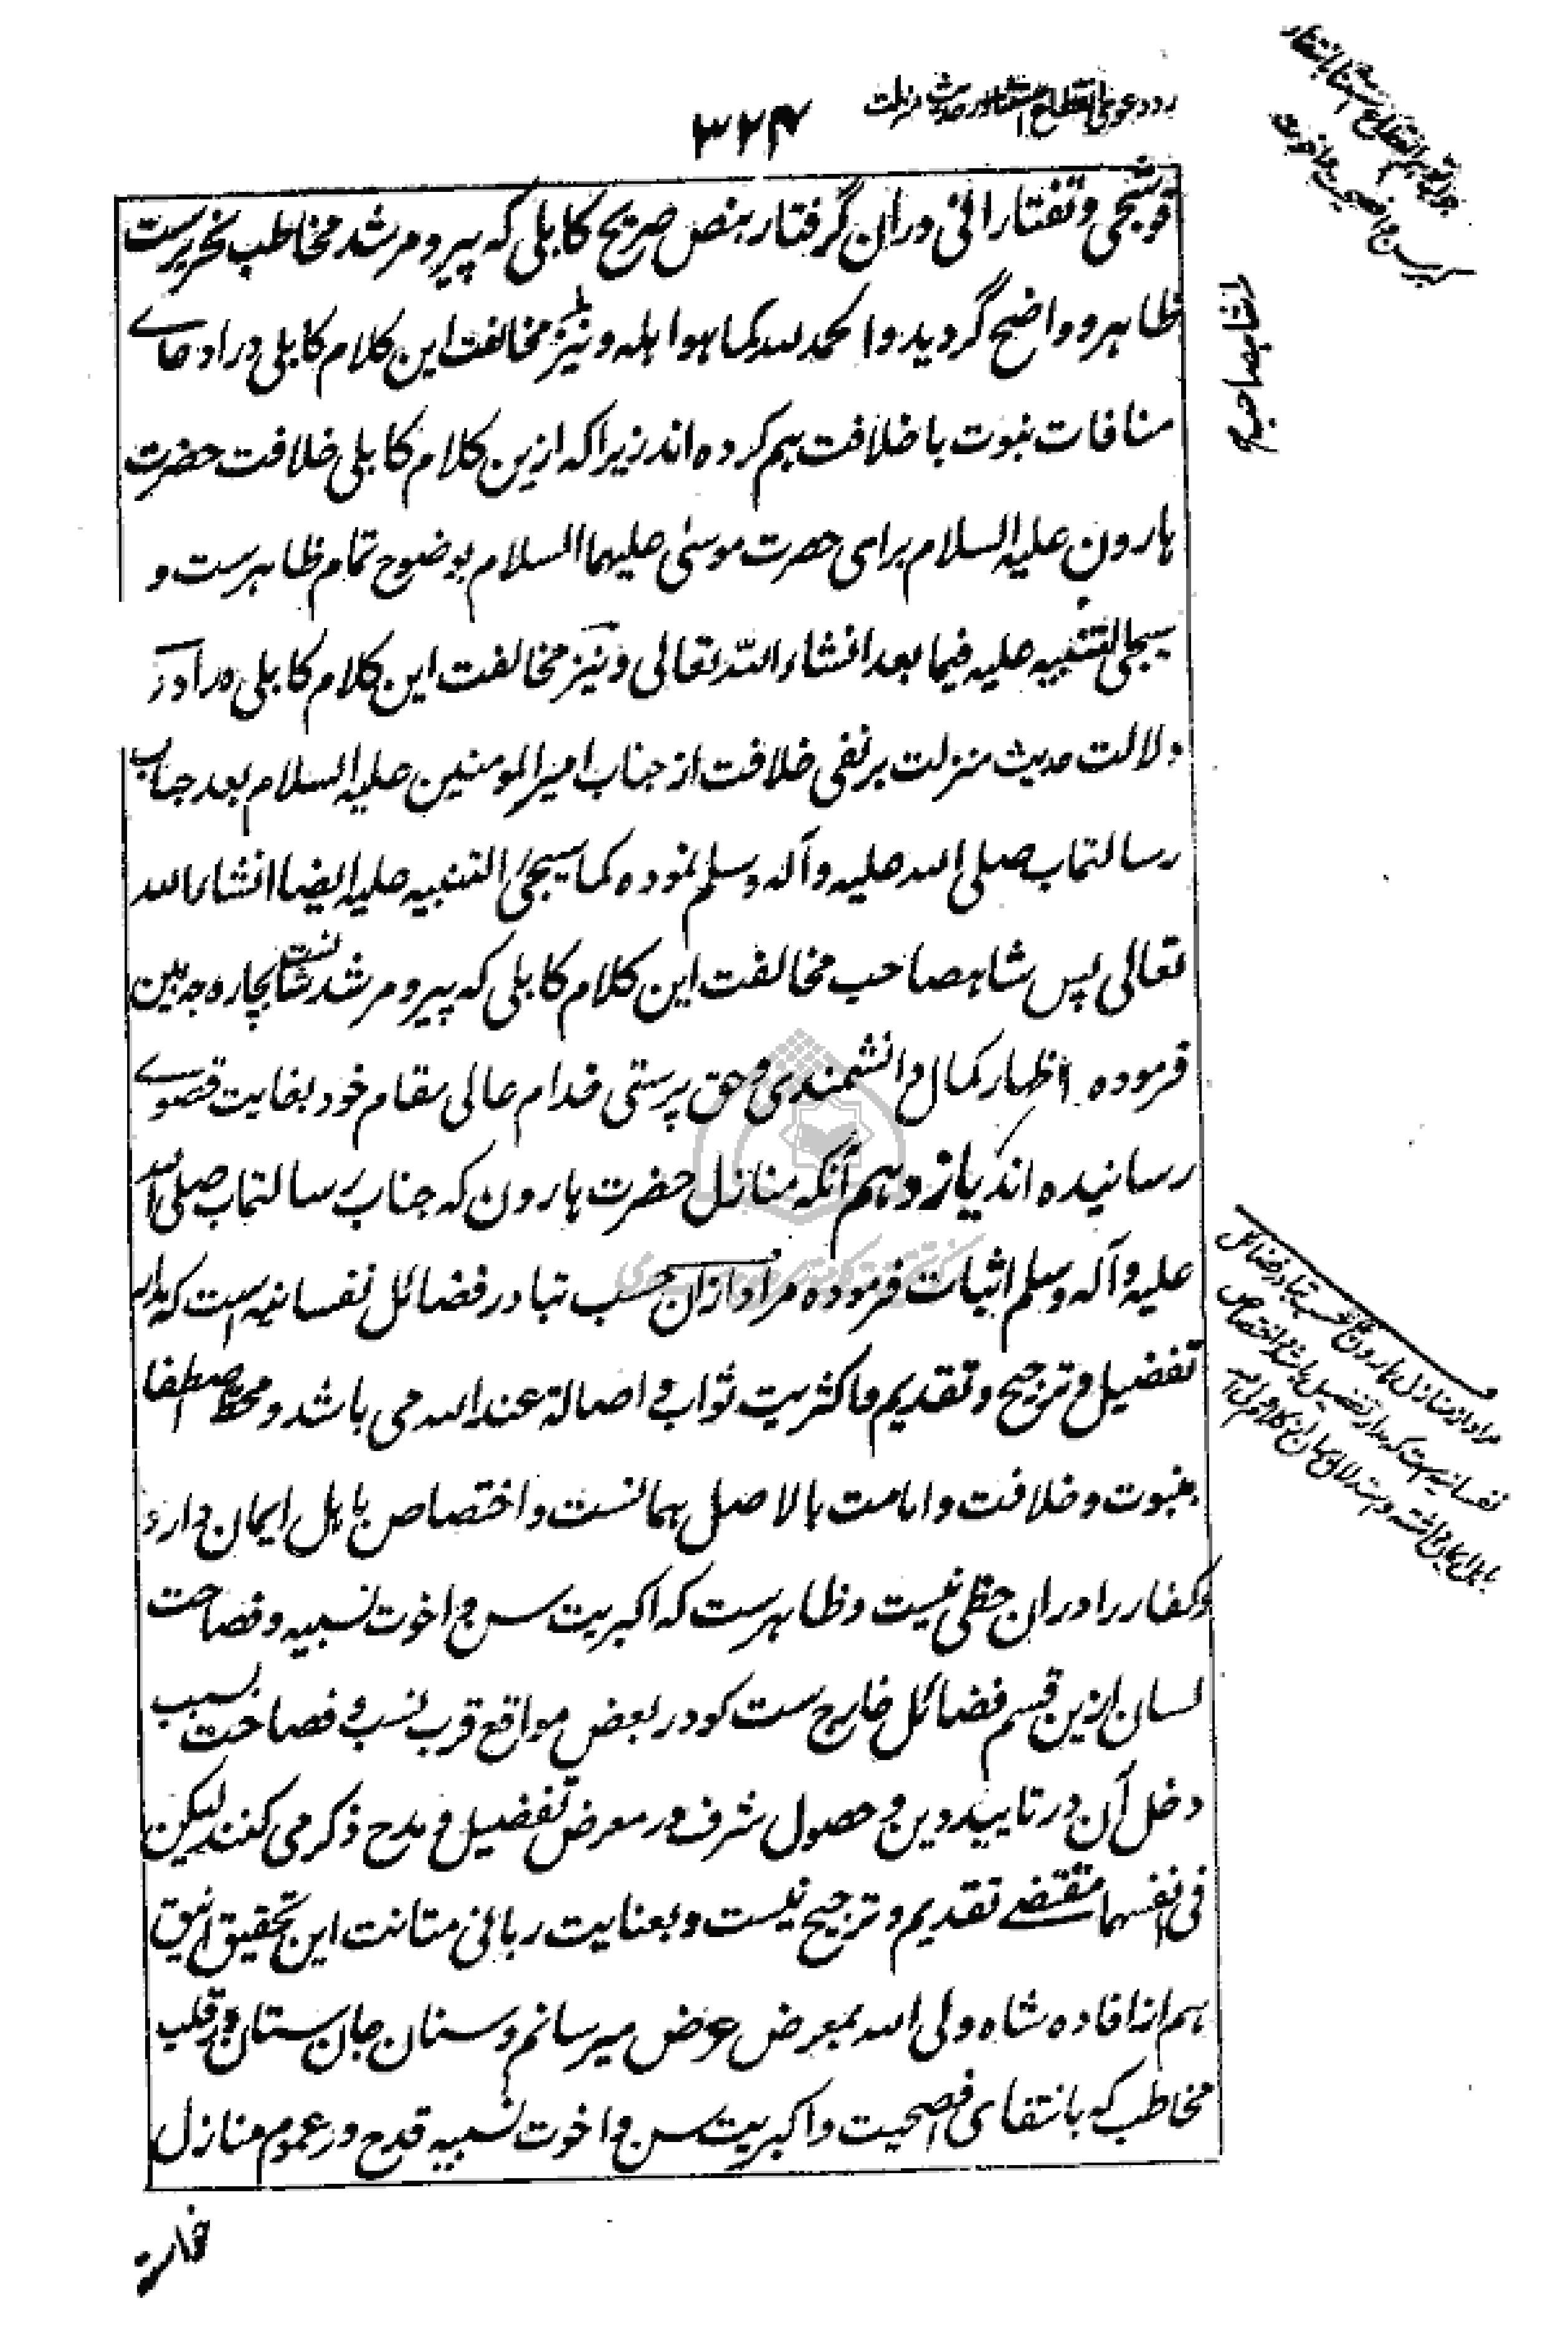 رد دعوی انقطاع استثناء در حدیث منزلت
۳۲۴
قوشجی و تفتازانی دران گرفتار بنص صریح کابلی که پیر و مرشد مخاطب نحریرست
ظاهر و واضح گردید و الحمد لله کما هو اهله و نیز مخالفت این کلام کابلی در ادعای
منافات نبوت با خلافت هم کرده اند زیرا که ازین کلام کابلی خلافت حضرت
هارون علیه السلام برای حضرت موسی علیهما السلام بوضوح تمام ظاهرست و
سیجی التنبیه علیه فیما بعد انشاء الله تعالی و نیز مخالفت این کلام کابلی در
دلالت حدیث منزلت بر نفی خلافت از جناب امیر المومنین علیه السلام بعد جناب
رسالتماب صلی الله علیه و آله و سلم نموده کما سیجیٔ التنبیه علیه ایضا انشاء الله
تعالی پس شاهصاحب مخالفت این کلام کابلی که پیر و مرشد شانست بچار وجه مبین
فرموده اظهار کمال دانشمندی و حق پرستی خدام عالی مقام خود بغایت قصوی
رسانیده اند یازدهم آنکه منازل حضرت هارون که جناب رسالتماب صلی الله
علیه و آله و سلم اثبات فرموده مراد ازان حسب تبادر فضائل نفسانیه است که مدار
تفضیل و ترجیح و تقدیم و اکثریت ثواب و اصالة عند الله می باشد و محط اصطفا
بنبوت و خلافت و امامت بالاصل همانست و اختصاص باهل ایمان دارد
و کفار را دران حظی نیست و ظاهرست که اکبریت سن و اخوت نسبیه و فصاحت
لسان ازین قسم فضائل خارج ست گو در بعض مواقع قرب نسب و فصاحت بسبب
دخل آن در تایید دین و حصول شرف در معرض تفضیل و مدح ذکر می کنند لیکن
فی انفسها مقتضی تقدیم و ترجیح نیست و بعنایت ربانی متانت این تحقیق انیق
هم از افاده شاه ولی الله بمعرض عرض میرسانم و سنان جان ستان در قلب
مخاطب که بانتفای افصحیت و اکبریت سن و اخوت نسبیه قدح در عموم منازل
مراد از منازل هارون حسب تبادر فضائل
نفسانیه است که مدار تفضیل باشد و اختصاص